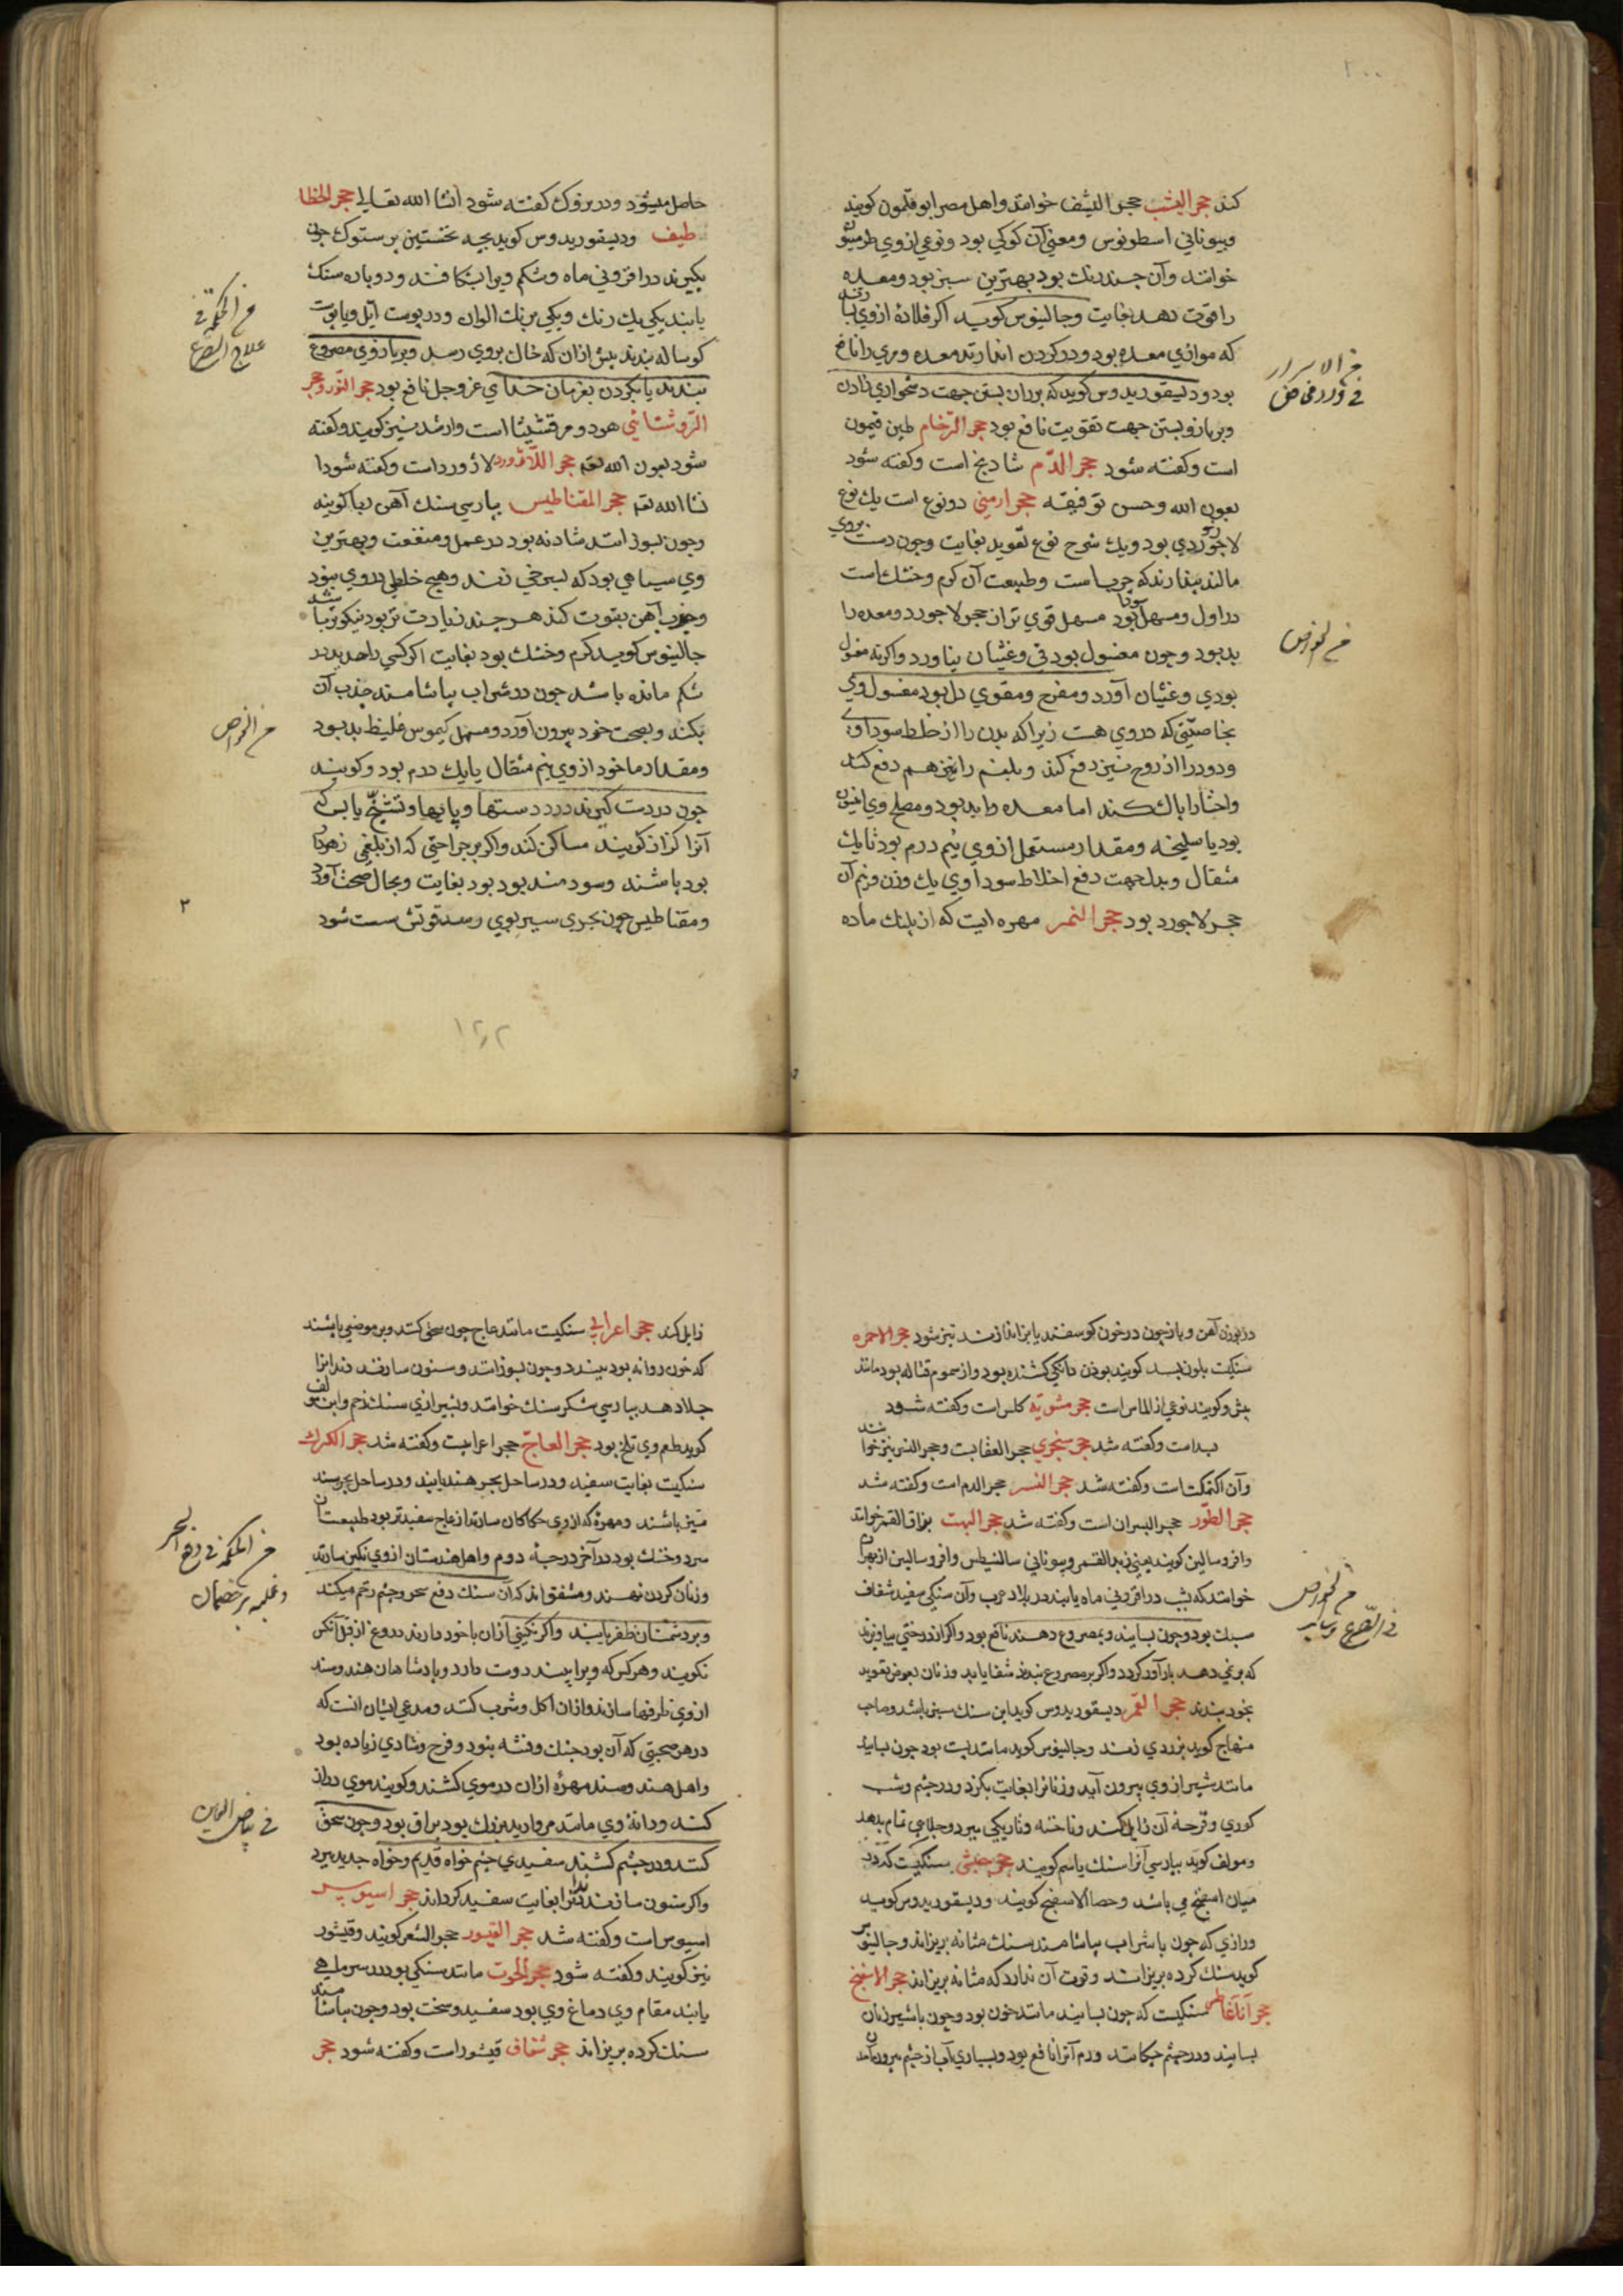 ۲۰۰
کند حجر الیشب حجر الیشف خوانند و اهل مصر ابو قلمون کویند
و بیونانی اسطونوس و معنی آن کوکبی بود و نوعی از وی طرمینون
خوانند وآن جند رنك بود بهترین سبز بود و معده
را قوت دهد بغایت و جالینوس کوید اکر قلادهٔ از وی
که موازی معده بود و در کردن اندازند معده و مری را نافع
بود و دیسقوریدوس کوید که بر ران بستن جهت دشخواری زادن
و بر بازو بستن جهت تقویت نافع بود حجر الرخام طین قیمون
است و کفته شود حجر الدم شادنج است و کفته شود
بعون الله و حسن توفیقه حجر ارمنی دو نوع است یك نوع
لاجوردی بود و یك نوع بغایت وجون دست بر وی
مالند پندارند که چربست و طبیعت آن کرم و خشك است
در اول و مسهل سودا بود مسهل قوی تر از حجر لاجورد و معده را
بد بود و جون مغسول بود قی و غثیان نیاورد و اکر نه مغسول
بودی و غثیان آورد و مفرح و مقوی دل بود مغسول وی
بخاصیتی که در وی هست زیرا که بدن را از خلط سوداوی
و دود را از روح نیز دفع کند و بلغم را نیز هم دفع کند
و احشا را پاك کند اما معده را بد بود و مصلح وی انیسون
بود یا سلیخه و مقدار مستعمل از وی نیم درم بود تا یك
مثقال و بدل جهت دفع اخلاط سوداوی یك وزن و نیم آن
حجر لاجورد بود حجر النمر مهره ایست که از پلنك ماده
الاسرار
الخواص
حاصل میشود و در بزوك کفته شود انشا الله تعالی حجر الخطا
طیف ودیسقوریدوس کوید بجه نخستین پرستوك جون
بکیرند در افزونی ماه و شکم ویرا بشکافند و دو پاره سنك
یابند یکی یك رنك و یکی برنك الوان و در پوست ایل و یا پوست
کوساله بندند پیش از ان که خاك بروی رسد و بر بازوی مصروع
بندند یا بکردن بفرمان خدای عز وجل نافع بود حجر النور و حجر
الروشنائی هر دو مرقشیثا است و ارشد نیز کویند و کفته
شود بعون الله تعم حجر اللاژورد لاژورد است و کفته شود ا
نشا الله تعم حجر المقناطیس بپارسی سنك آهن ربا کویند
وجون بسوزانند شادنه بود در عمل و منفعت و بهترین
وی سیاهی بود که بسرخی زند و هیج خلطی در وی نبود
و جذب آهن بقوت کند هر جند زیادت تر بود نیکوتر باشد
جالینوس کوید کرم و خشك بود بغایت اکر کسی را حدید در
شکم مانده باشد جون در شراب بیاشامند جذب آن
بکند و بصحت خود بیرون آورد و مسهل کیموس غلیظ بد بود
و مقدار ماخوذ از وی نیم مثقال یا یك درم بود و کویند
جون در دست کیرند درد دستها و پایها و تشنج یا بس که
آنرا کزاز کویند ساکن کند و اکر بر جراحتی که از تیغی زهردار
بود باشند و سودمند بود بود بغایت و بحال صحت آورد
و مقناطیس جون بحری سیر بوی رسد قوتش سست شود
علاج الصرع
الخواص
۲
۱۲٫۲
در بردن آهن و باز جون در خون کوسفند یا بز اندازند تیز شود حجر الاحمره
سنکیست بلون بسد کویند بوزن دانکی کشنده بود و از سموم قتاله بود مانند
بیش و کویند نوعی از الماس است حجر مشویة کلس است و کفته شود
بدامت و کفته شد حجر سنجری حجر العقاب است و حجر النسر نیز خوانند
وآن اکتمکت است و کفته شد حجر النسر حجر الدم است و کفته شد
حجر الطور حجر البسران است و کفته شد حجر البهت بزاق القمر خوانند
و افروسالین کویند یعنی زبد القمر و بیونانی سالنیطس و افروسالین از بهر آن
خوانند که بشب در افزونی ماه یابند در بلاد عرب وآن سنکی سفید شفاف
سبك بود وجون بسایند و بمصروع دهند نافع بود و اکر از درختی بیاویزند
که بر نمی دهد بار آور کردد و اکر بر مصروع بندند شفا یابد و زنان بعوض تعوید
بخود بندند حجر القمر دیسقوریدوس کوید این سنك سبز باشد و صاحب
منهاج کوید بزردی زند و جالینوس کوید مانند یشب بود جون بسایند
مانند شیر از وی بیرون آید و زبانرا بغایت بکزد و در چشم و شب
کوری و قرحهٔ آن زایل کند و ناخنه و تاریکی ببرد و جلایی تمام بدهد
و مولف کوید بپارسی آنرا سنك یاسم کویند حجر حبشی سنکیست که در
میان اسفنج می باشد و حصاالاسفنج کویند و دیسقوریدوس کوید
و رازی که جون با شراب بیاشامند سنك مثانه بریزاند و جالینوس
کوید سنك کرده بریزانند و قوت آن ندارد که مثانه بریزاند حجر الاسفنج
حجر آناغاطس سنکیست که جون بسایند مانند خون بود وجون با شیر زنان
بسایند و در چشم جکانند ورم آنرا نافع بود و بسیاری آب از چشم بیرون آمدن
الخواص
زایل کند حجر اعرابی سنکیست مانند عاج جون سحق کنند و بر موضعی پاشند
که خون روانه بود ببندد وجون بسوزانند و سنون سازند دندانرا
جلا دهد بپارسی شکر سنك خوانند و بشیرازی سنك زخم و ابن مولف
کوید طعم وی تلخ بود حجر العاج حجر اعرابیست و کفته شد حجر الکرك
سنکیست بغایت سفید و در ساحل بحر هند یابند و در ساحل بحر سند
نیز باشند و مهره که از وی حکاکان سازند از عاج سفیدتر بود طبیعت آن
سرد و خشك بود در آخر درجهٔ دوم و اهل هندستان از وی نکین سازند
و زنان کردن نهند و متفق اند که آن سنك دفع سحر و چشم زخم میکند
و بر دشمنان ظفر یابند و اکر نکینی از ان با خود دارند دروغ از قول آنکس
نکویند و هر کس که ویرا ببیند دوست دارد و پادشاهان هند و سند
از وی ظرفها سازند و از ان اکل و شرب کنند و مدعی ایشان انست که
در هر صحبتی که آن بود جنك و فتنه نبود و فرح و شادی زیاده بود
و اهل هند و سند مهرهٔ ازان در موی کشند و کویند موی دراز
کند و دانهٔ وی مانند مروارید بزرك بود براق بود وجون سحق
کنند و در چشم کشند سفیدی چشم خواه قدیم و خواه جدید ببرد
و اکر سنون سازند دندانرا بغایت سفید کرداند حجر اسیوس
اسیوس است و کفته شد حجر القیور حجر الشعر کویند و قیشور
نیز کویند و کفته شود حجر الحوت مانند سنکی بود در سر ماهی
یابند مقام وی دماغ وی بود سفید و سخت بود وجون بیاشامند
سنك کرده بریزاند حجر شفاف قیشور است و کفته شود حجر
فی بیاض العین